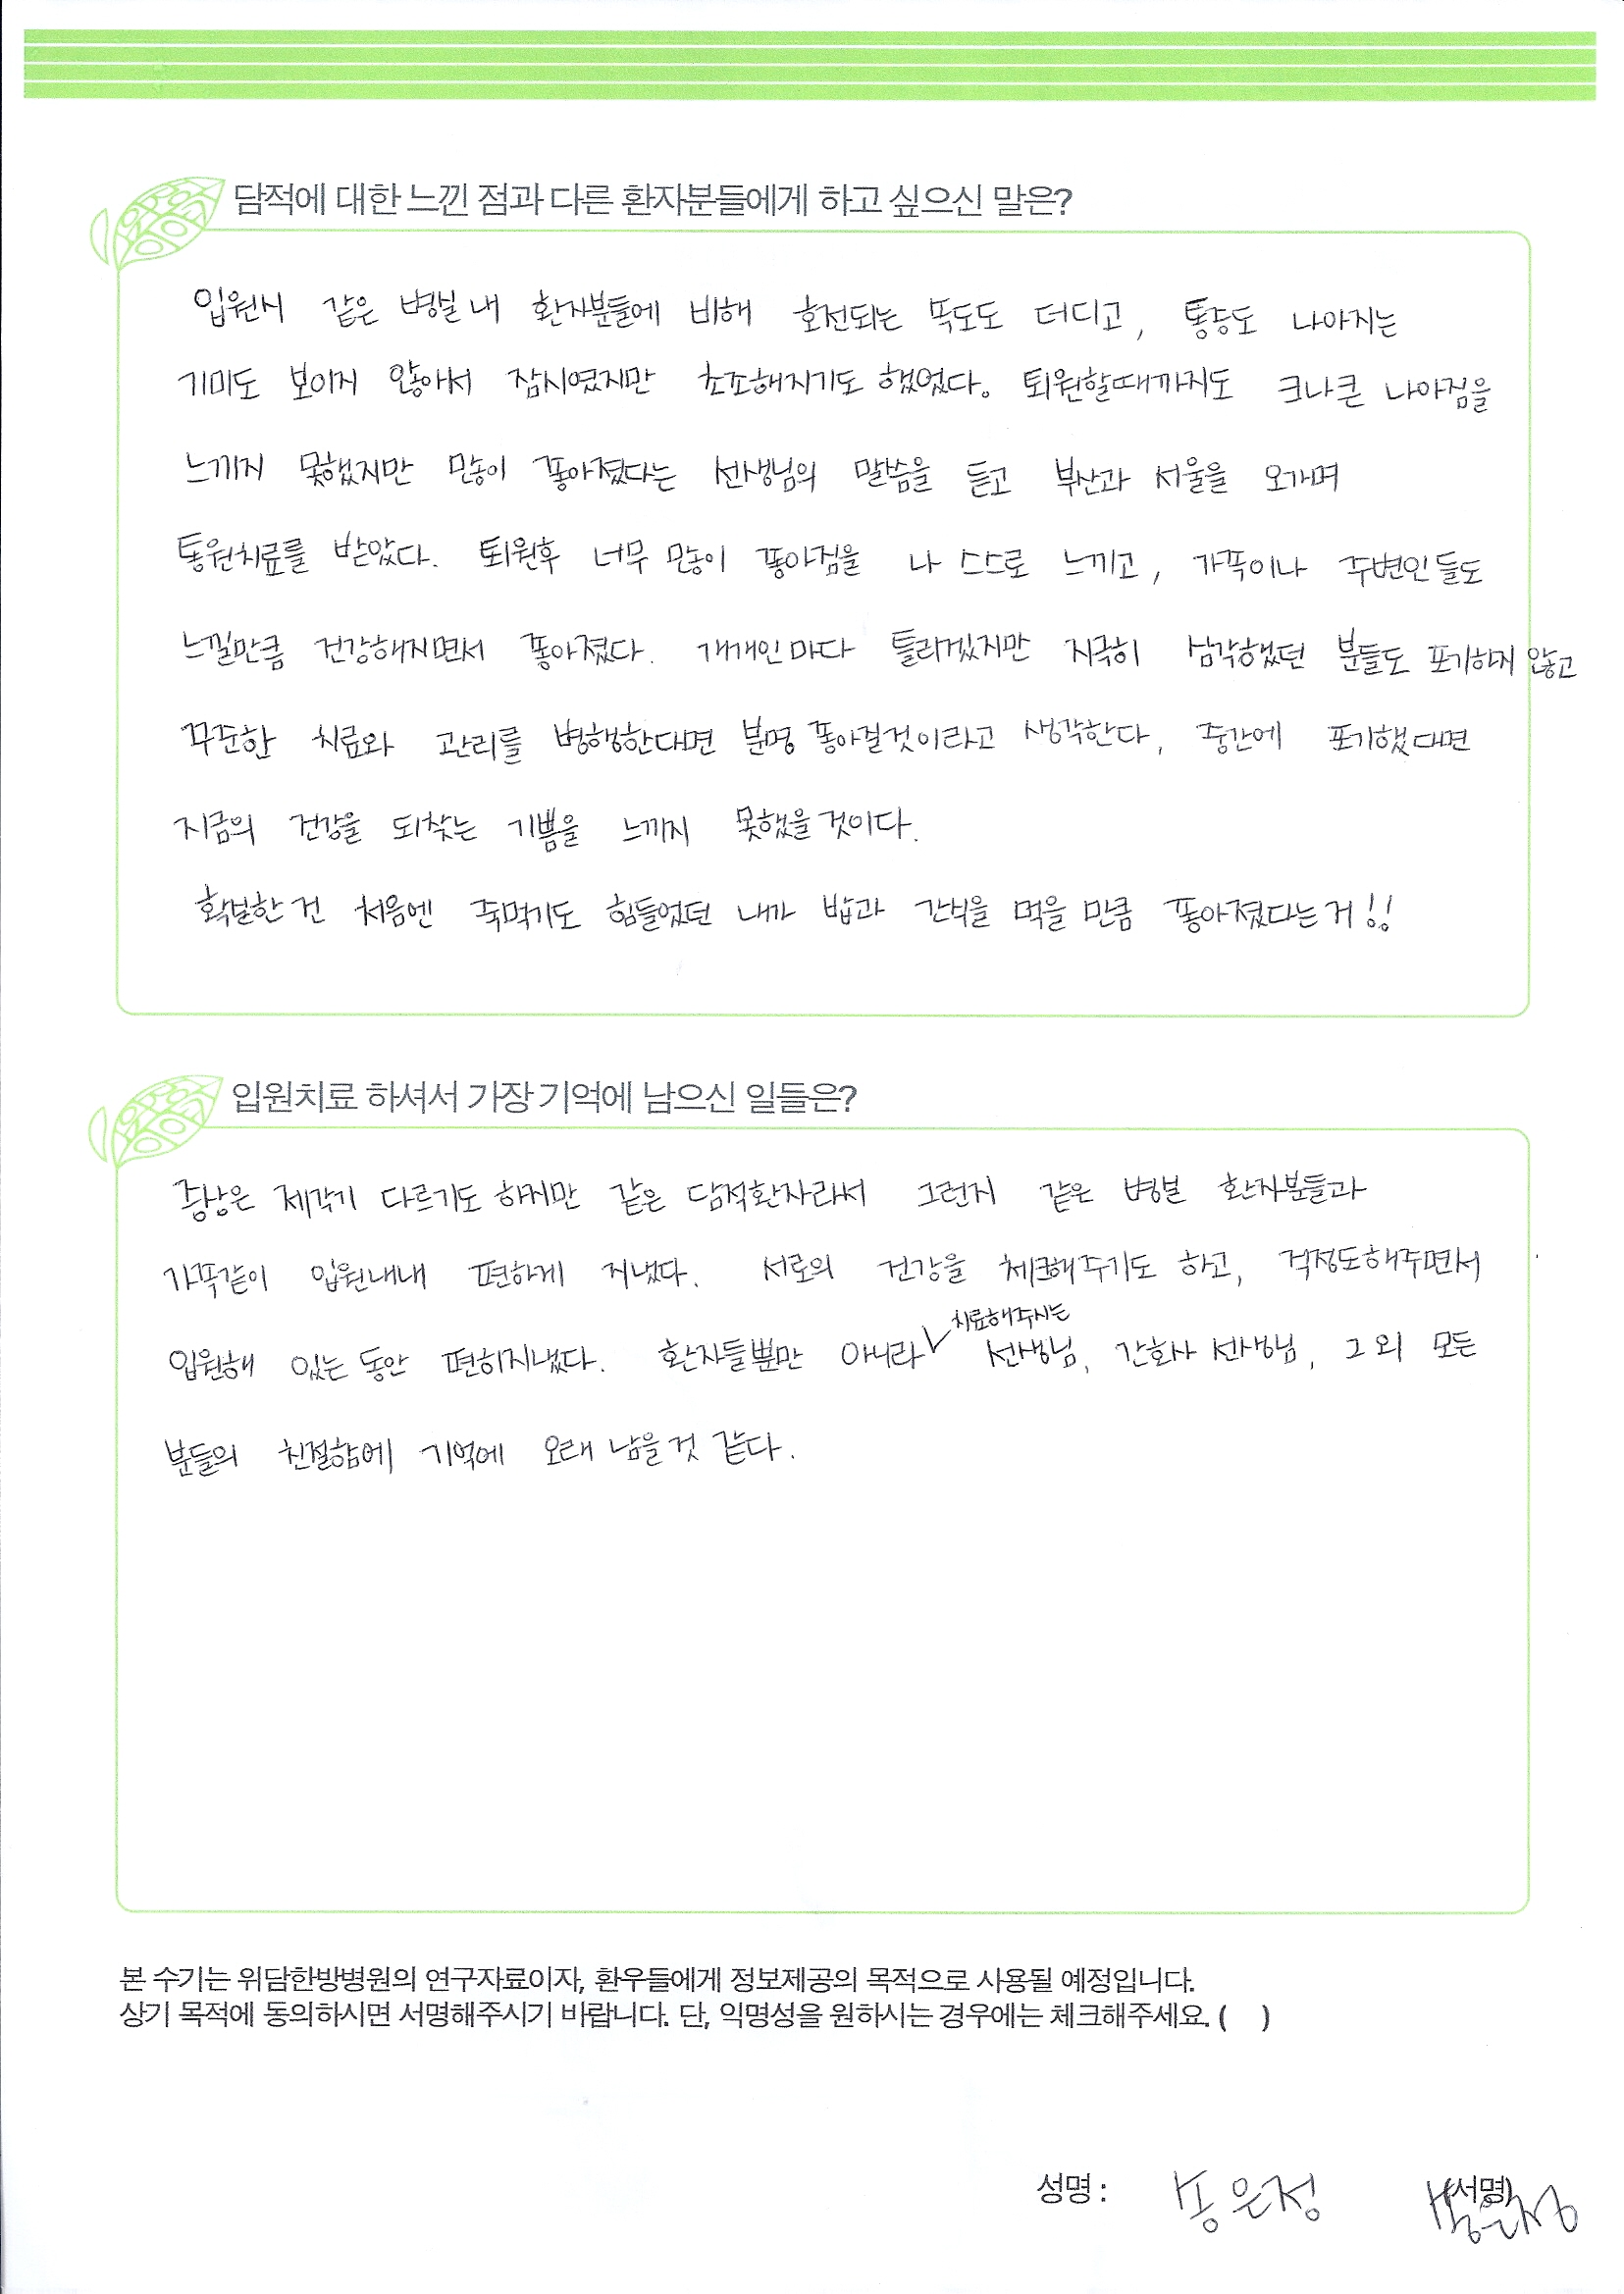 담적에 대한 느낀 점과 다른 환자분들에게 하고 싶으신 말은?
입원시 같은 병실내 환자분들에 비해 호전되는 속도도 더디고, 통증도 나아지는
기미도 보이지 않아서 잠시였지만 초조해지기도 했었다. 퇴원할때까지도 크나큰 나아짐을
느끼지 못했지만 많이 좋아졌다는 선생님의 말씀을 듣고 부산과 서울을 오가며
통원치료를 받았다. 퇴원후 너무 많이 좋아짐을 나 스스로 느끼고, 가족이나 주변인들도
느낄만큼 건강해지면서 좋아졌다. 개개인마다 틀리겠지만 지극히 심각했던 분들도 포기하지 않고
꾸준한 치료와 관리를 병행한다면 분명 좋아질것이라고 생각한다, 중간에 포기했다면
지금의 건강을 되찾는 기쁨을 느끼지 못했을것이다.
확실한건 처음엔 죽먹기도 힘들었던 내가 밥과 간식을 먹을만큼 좋아졌다는거!!
입원치료 하셔서 가장 기억에 남으신 일들은?
증상은 제각기 다르기도 하지만 같은 담적환자라서 그런지 같은 병실 환자분들과
가족같이 입원내내 편하게 지냈다. 서로의 건강을 체크해주기도 하고, 걱정도해주면서
입원해 있는동안 편히지냈다. 환자들뿐만 아니라 치료해주시는 선생님, 간호사 선생님, 그 외 모든
분들의 친절함에 기억에 오래 남을것 같다.
본 수기는 위담한방병원의 연구자료이자, 환우들에게 정보제공의 목적으로 사용될 예정입니다.
상기 목적에 동의하시면 서명해주시기 바랍니다. 단, 익명성을 원하시는 경우에는 체크해주세요. ( )
성명 : 송은정 (서명) 송은정